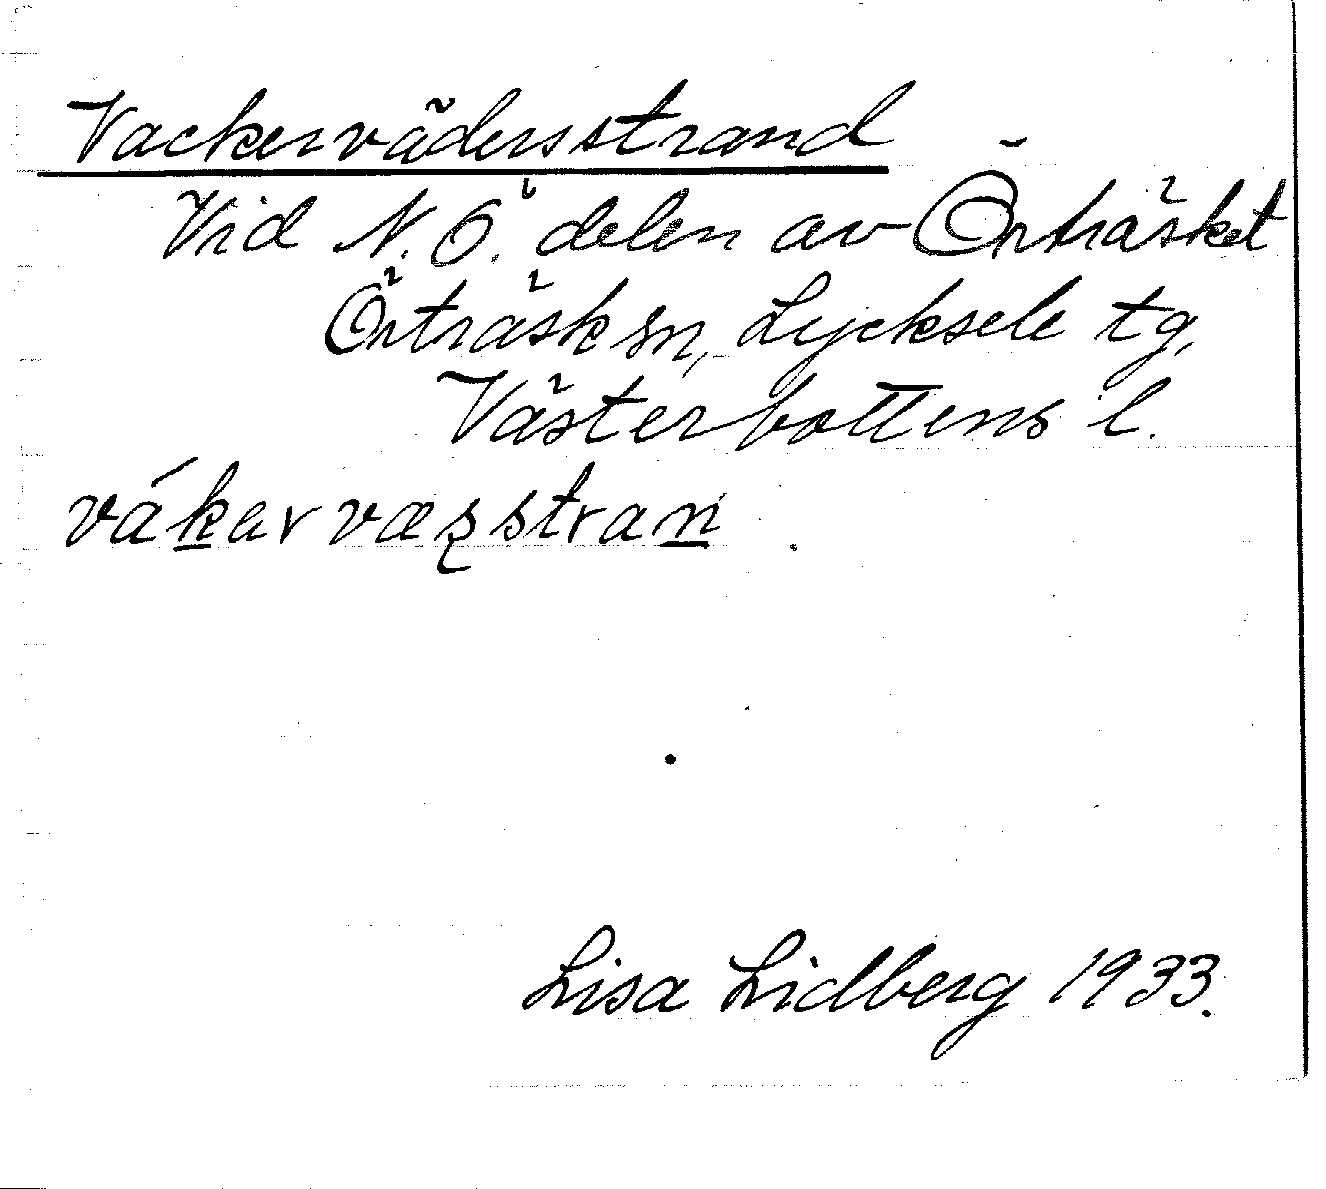 Vackervädersstrand
Vid N.Ö. delen av Örträsket
Örträsk sn, Lycksele tg,
Västerbottens l.
vákarvæʂstran.
Lisa Lidberg 1933.